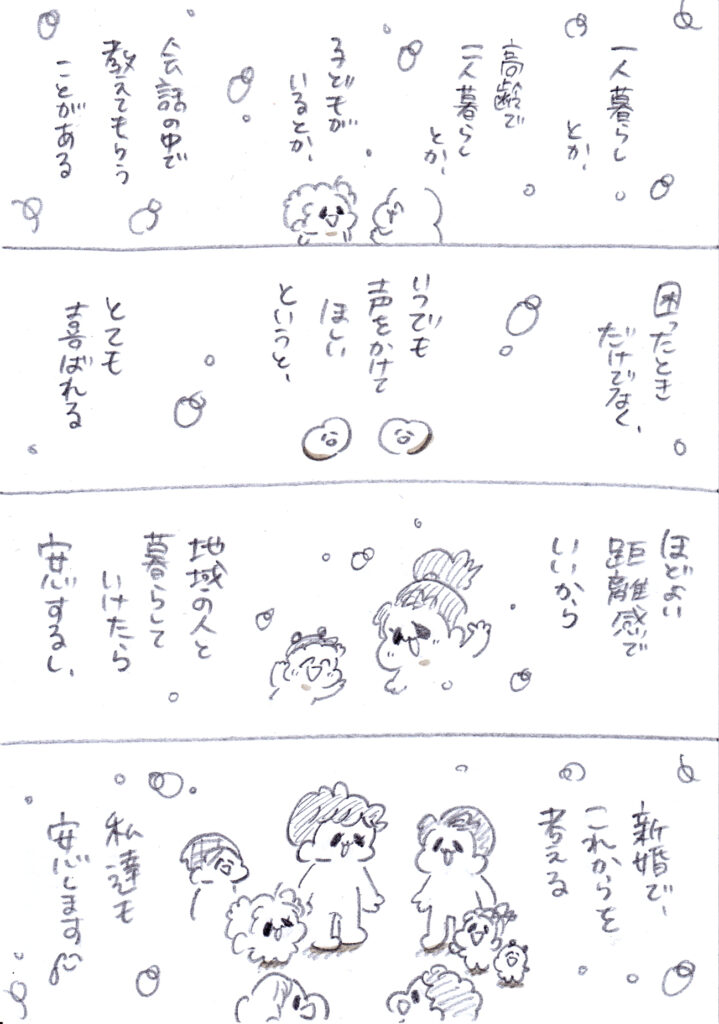 一人暮らし
とか、
高齢で
一人暮らし
とか、
子どもが
いるとか、
会話の中で
教えてもらう
ことがある
困ったとき
だけでなく、
いつでも
声をかけて
ほしい
というと、
とても
喜ばれる
ほどよい
距離感で
いいから
地域の人と
暮らして
いけたら
安心するし、
新婚で、
これからを
考える
私達も
安心します